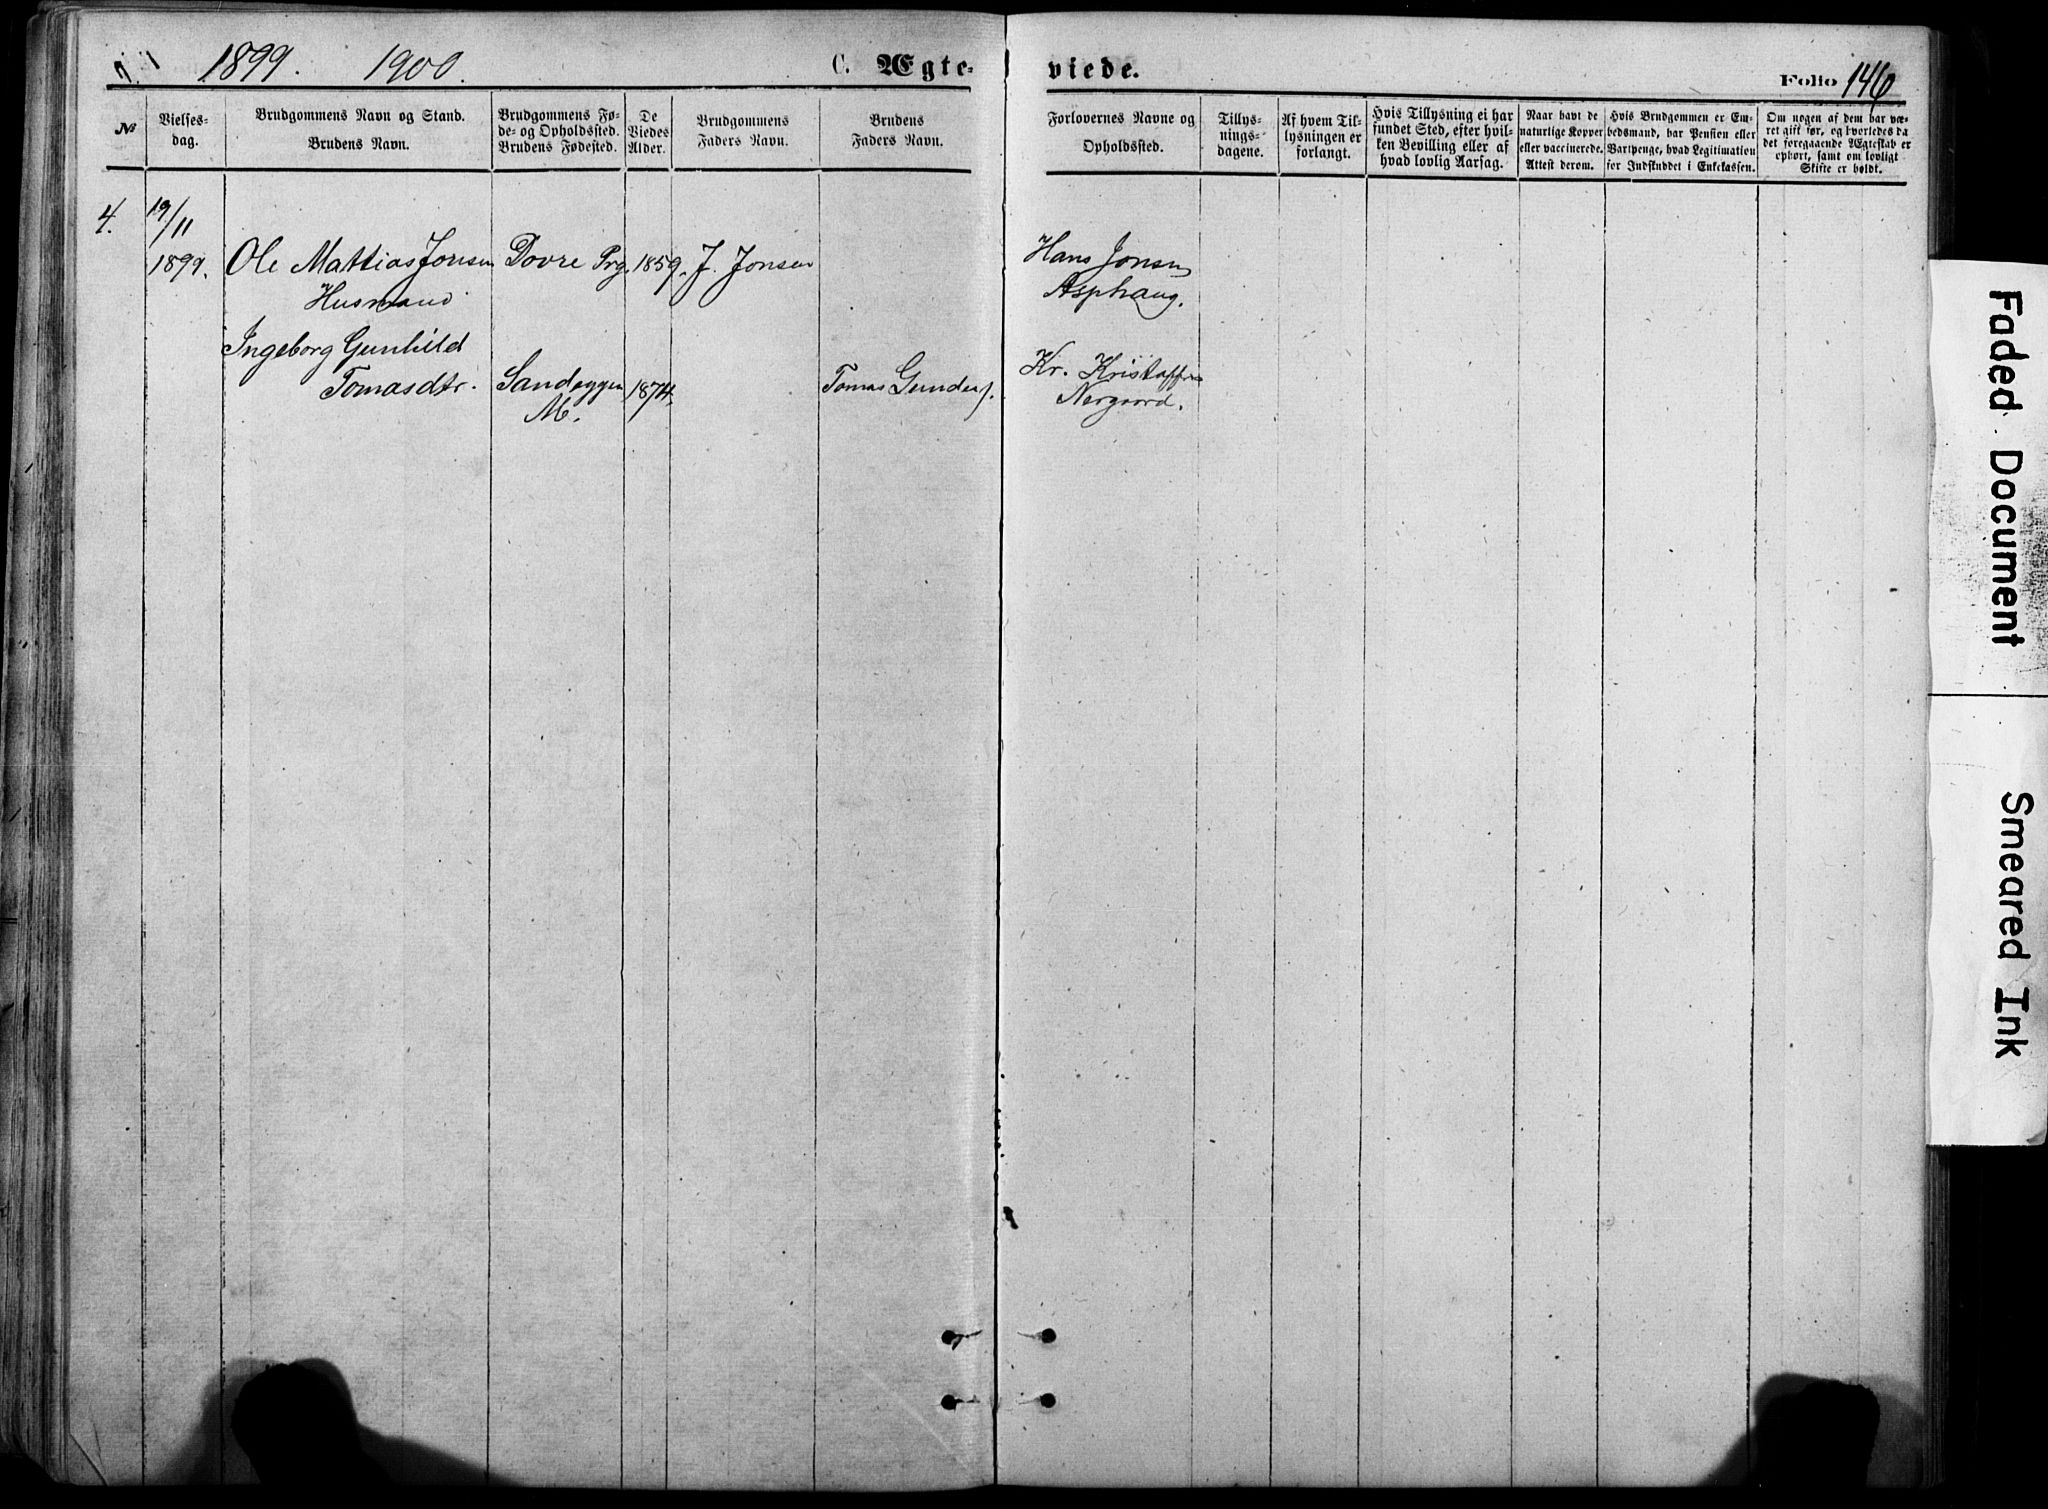 1899. 1900.
C. Ægte-
viede.
Folio 146
№
Vielses-
dag.
Brudgommens Navn og Stand.
Brudens Navn.
Brudgommens Fø-
de- og Opholdssted.
Brudens Fødested.
De
Viedes
Alder.
Brudgommens
Faders Navn.
Brudens
Faders Navn.
Forlovernes Navne og
Opholdssted.
Tillys-
nings-
dagene.
Af hvem Til-
lysningen er
forlangt.
Hvis Tillysning ei har
fundet Sted, efter hvil-
ken Bevilling eller af
hvad lovlig Aarsag.
Naar havt de
naturlige Kopper
eller vaccinerede.
Attest derom.
Hvis Brudgommen er Em-
bedsmand, har Pension eller
Vartpenge, hvad Legitimation
for Indskuddet i Enkekassen.
Om nogen af dem har væ-
ret gift før, og hvorledes da
det foregaaende Ægteskab er
ophørt, samt om lovligt
Skifte er holdt.
4.
19/11
1899.
Ole Mattias Jonsen
Husmand
Dovre Prg.
1859.
J. Jonsen
Hans Jonsen
Asphaug.
Ingeborg Gunhild
Tomasdtr.
Sandeggen
M.
1874.
Tomas Gunders.
Kr. Kristoffersen
Nergaard.
Faded Document
Smeared Ink